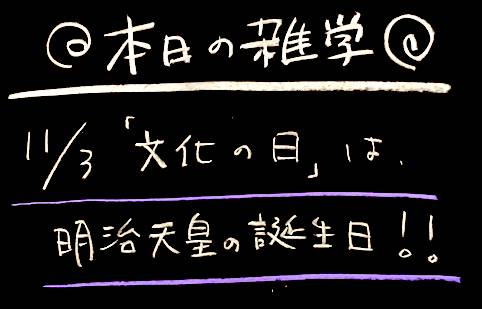 @本日の雑学@
11/3「文化の日」は、
明治天皇の誕生日!!